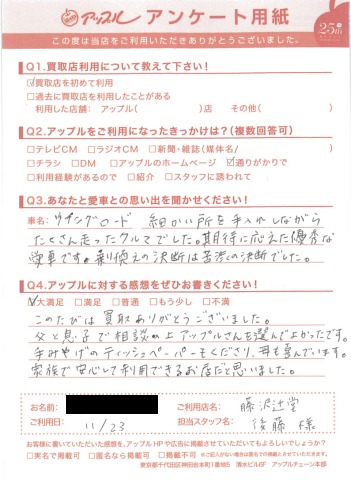 アップル アンケート用紙 25th
この度は当店をご利用いただきありがとうございました。
Q1.買取店利用について教えて下さい!
☑買取店を初めて利用
□過去に買取店を利用したことがある
利用した店舗: アップル( )店 その他( )
Q2.アップルをご利用になったきっかけは?(複数回答可)
□テレビCM □ラジオCM □新聞・雑誌(媒体名/ )
□チラシ □DM □アップルのホームページ ☑通りがかりで
□利用経験があるので □紹介 □スタッフに誘われて
Q3.あなたと愛車との思い出を聞かせください!
車名: ウイングロード 細かい所を手入れしながら
たくさん走ったクルマでした。期待に応えた優秀な
愛車です。乗換えの決断は苦渋の決断でした。
Q4.アップルに対する感想をぜひお書きください!
☑大満足 □満足 □普通 □もう少し □不満
このたびは買取ありがとうございました。
父と息子で相談の上アップルさんを選んで良かったです。
手みやげのティッシュペーパーもくださり、母も喜んでいます。
家族で安心して利用できるお店だと思いました。
お名前: ご利用店名: 藤沢辻堂
ご利用日: 11/23 担当スタッフ名: 後藤 様
お客様に書いていただいた感想を、アップルHPや広告に掲載させていただいてもよろしいでしょうか?
□実名で掲載可 □匿名なら掲載可 □掲載不可 ※ご記入がない場合は匿名での掲載とさせていただきます。
東京都千代田区神田台本町1番地5 清水ビル6F アップルチェーン本部